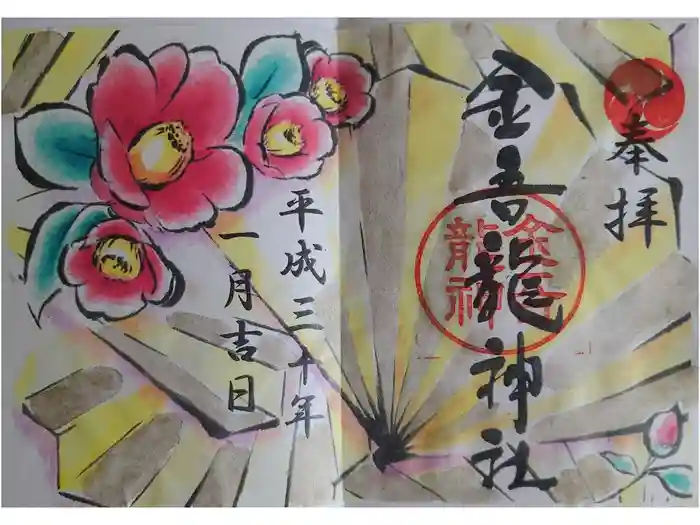 奉拝
金吾龍神社
金吾
龍神
平成三十年
一月吉日